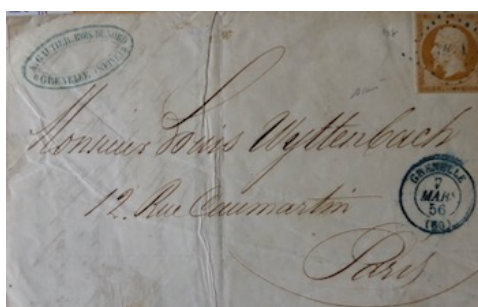 A. GAUTIER,
À GRENELLE,
Monsieur Louis Wyttenbach
12. Rue Caumartin
Paris
GRENELLE
7
MARS
56
(60)